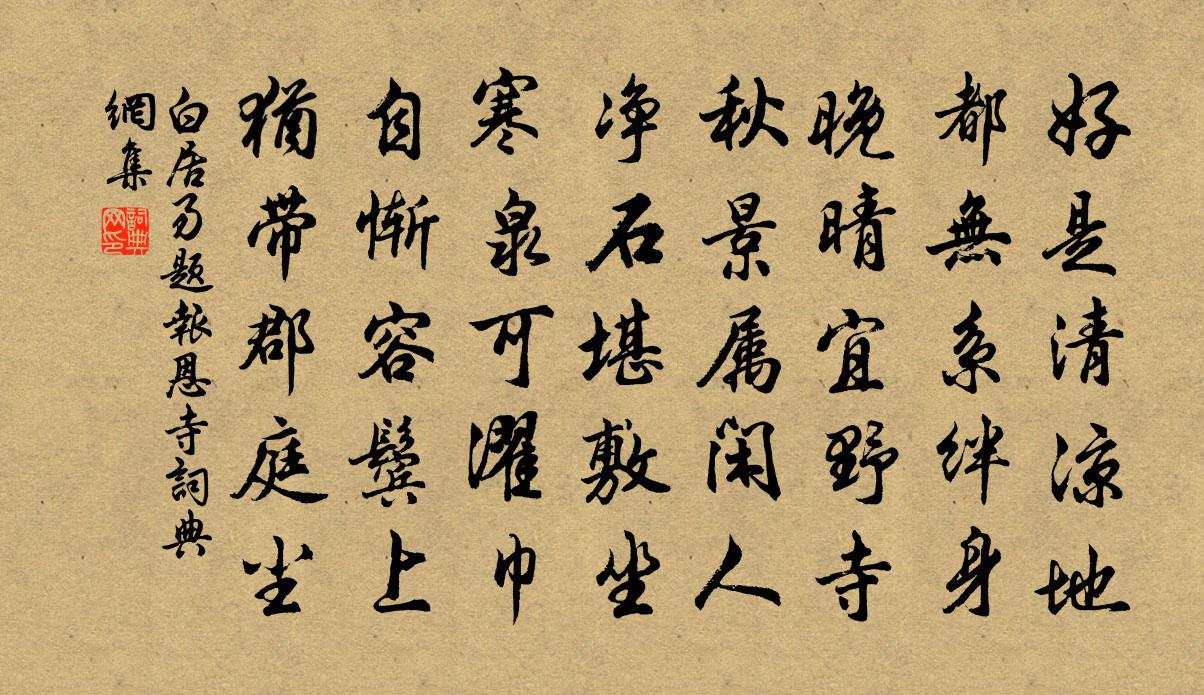 好是清凉地
都無系绊身
晚晴宜野寺
秋景属闲人
净石堪敷坐
寒泉可濯巾
自惭容鬓上
猶带郡庭尘
白居易題報恩寺詞典
網集
詞典
网印